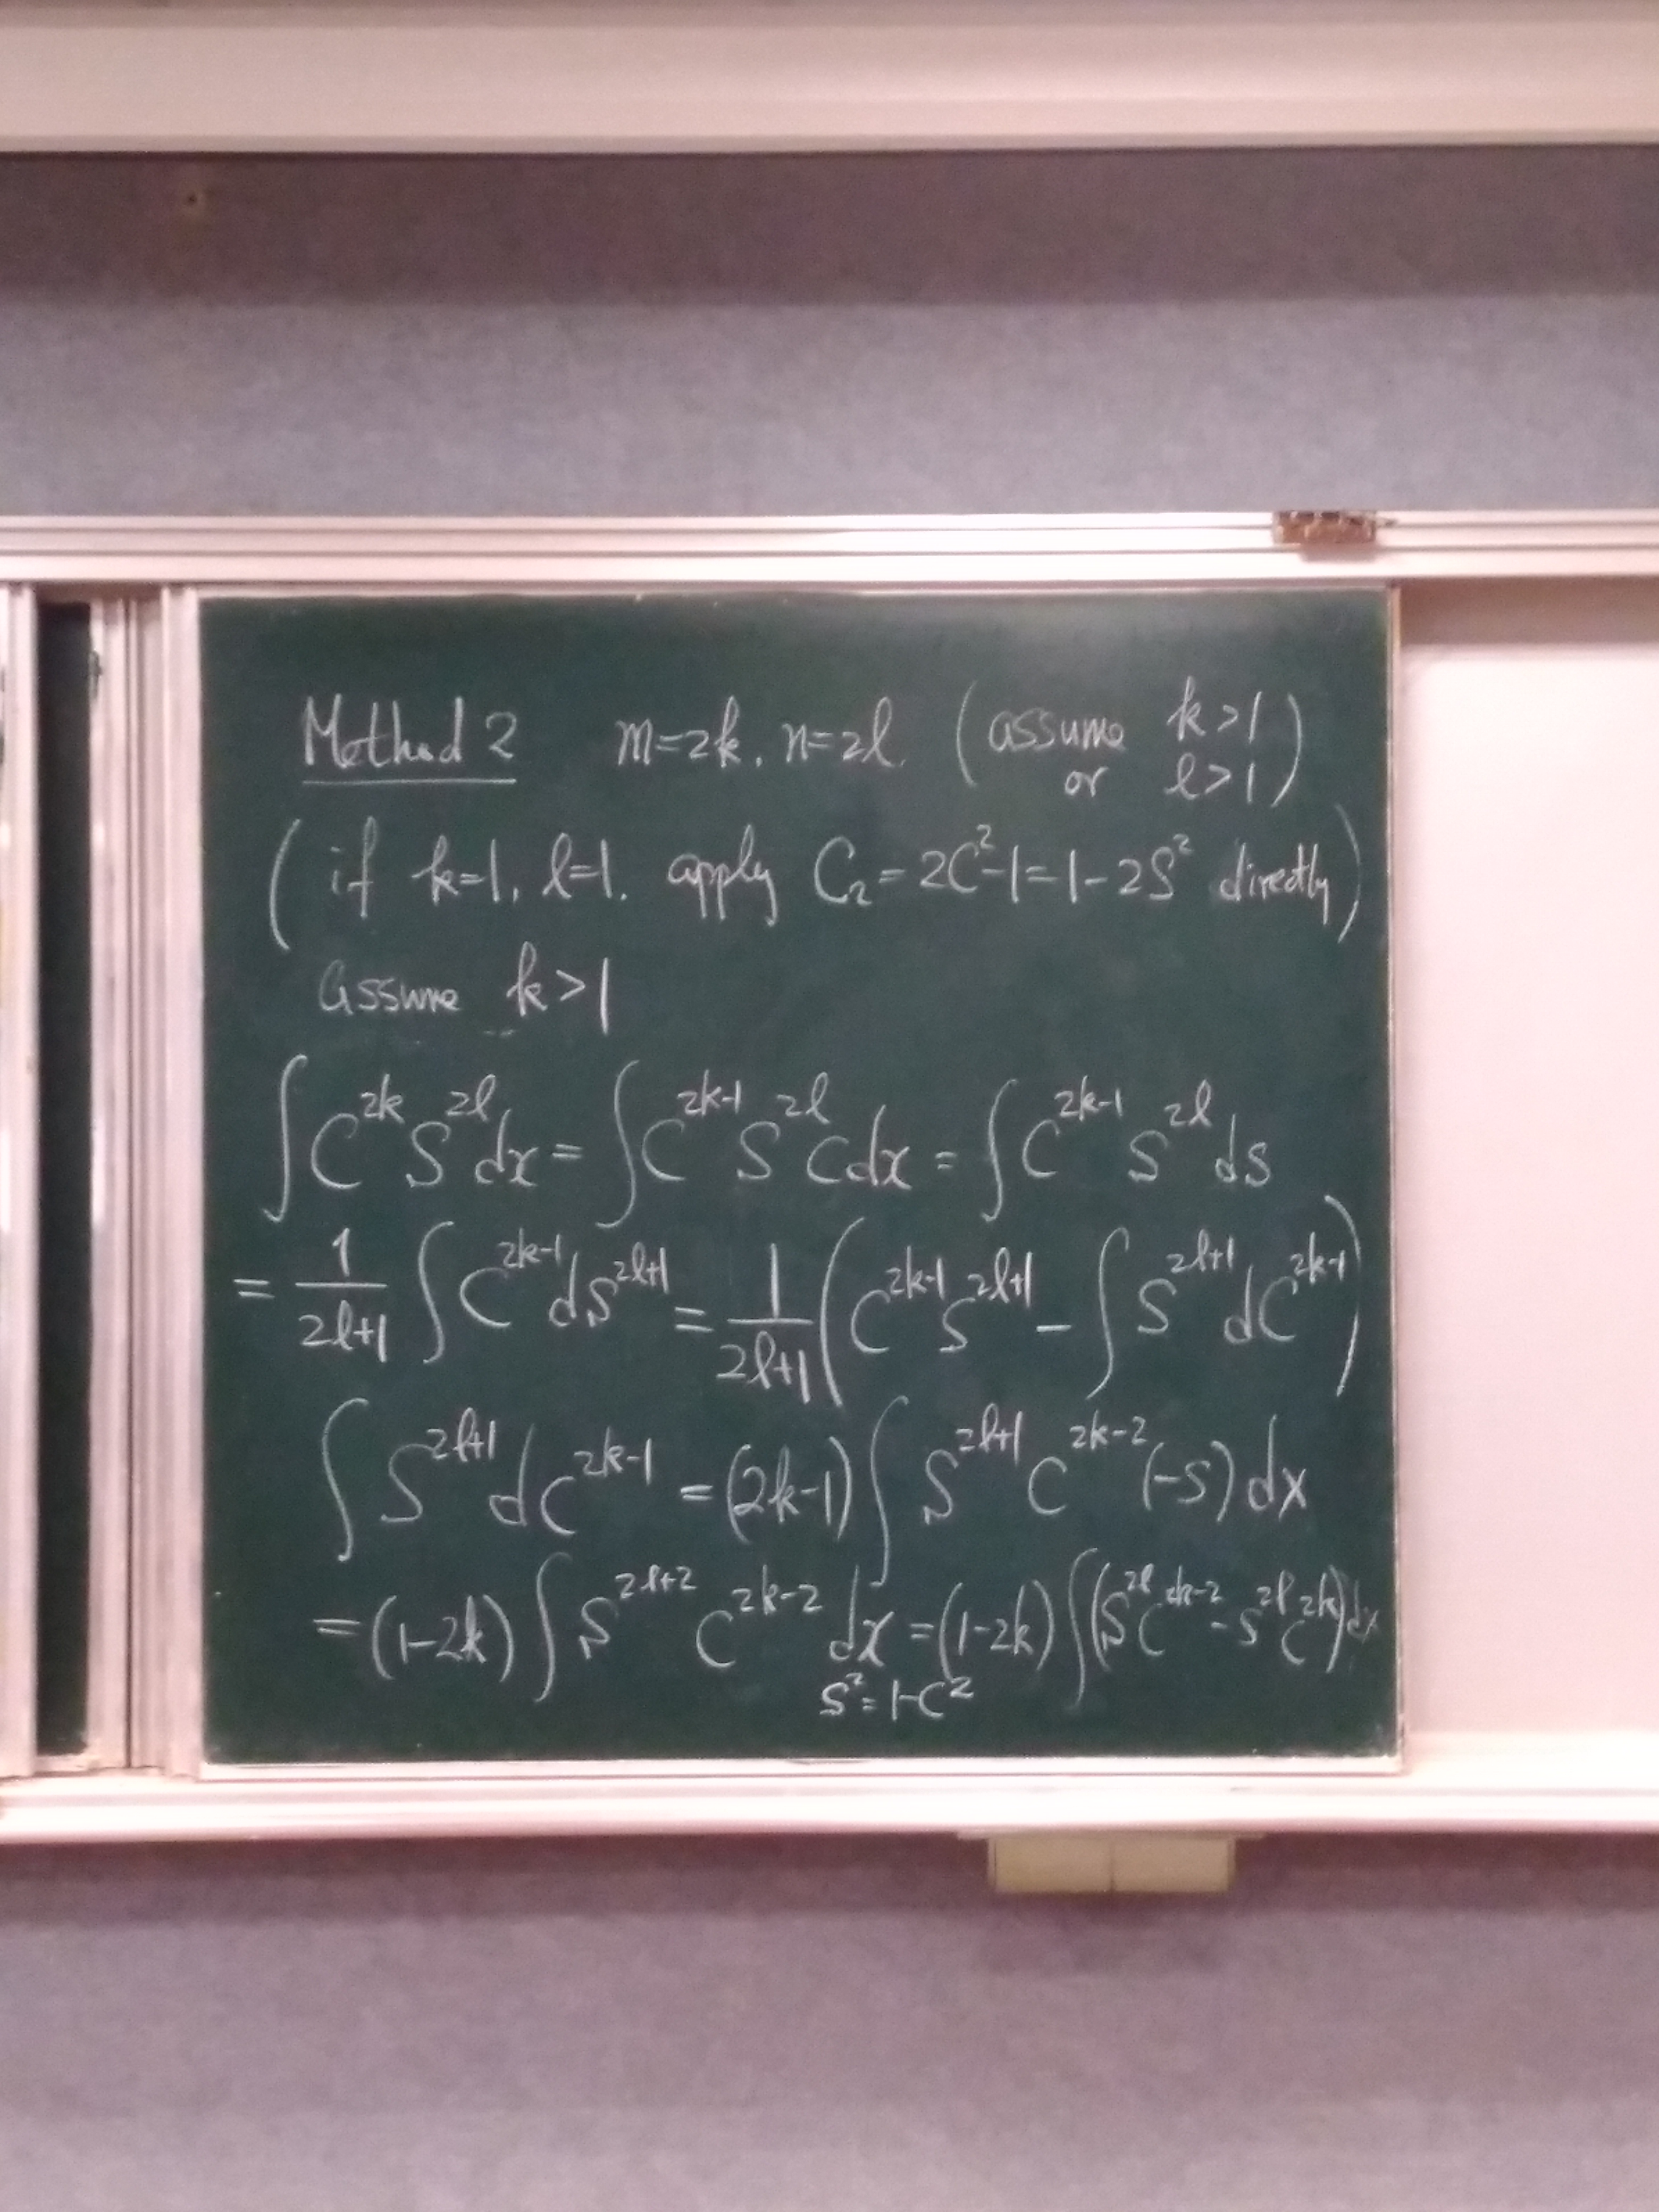 Method 2 m=2k, n=2l (assume k>1
or l>1)
(if k=1, l=1. apply C₂=2C²-1=1-2S² directly)
Assume k>1
∫C^{2k}S^{2l}dx = ∫C^{2k-1}S^{2l}Cdx = ∫C^{2k-1}S^{2l}dS
= \frac{1}{2l+1}∫C^{2k-1}dS^{2l+1} = \frac{1}{2l+1}(C^{2k-1}S^{2l+1} - ∫S^{2l+1}dC^{2k-1})
∫S^{2l+1}dC^{2k-1} = (2k-1)∫S^{2l+1}C^{2k-2}(-S)dx
= (1-2k)∫S^{2l+2}C^{2k-2}dx = (1-2k)∫(S^{2l}C^{2k-2} - S^{2l}C^{2k})dx
S²=1-C²